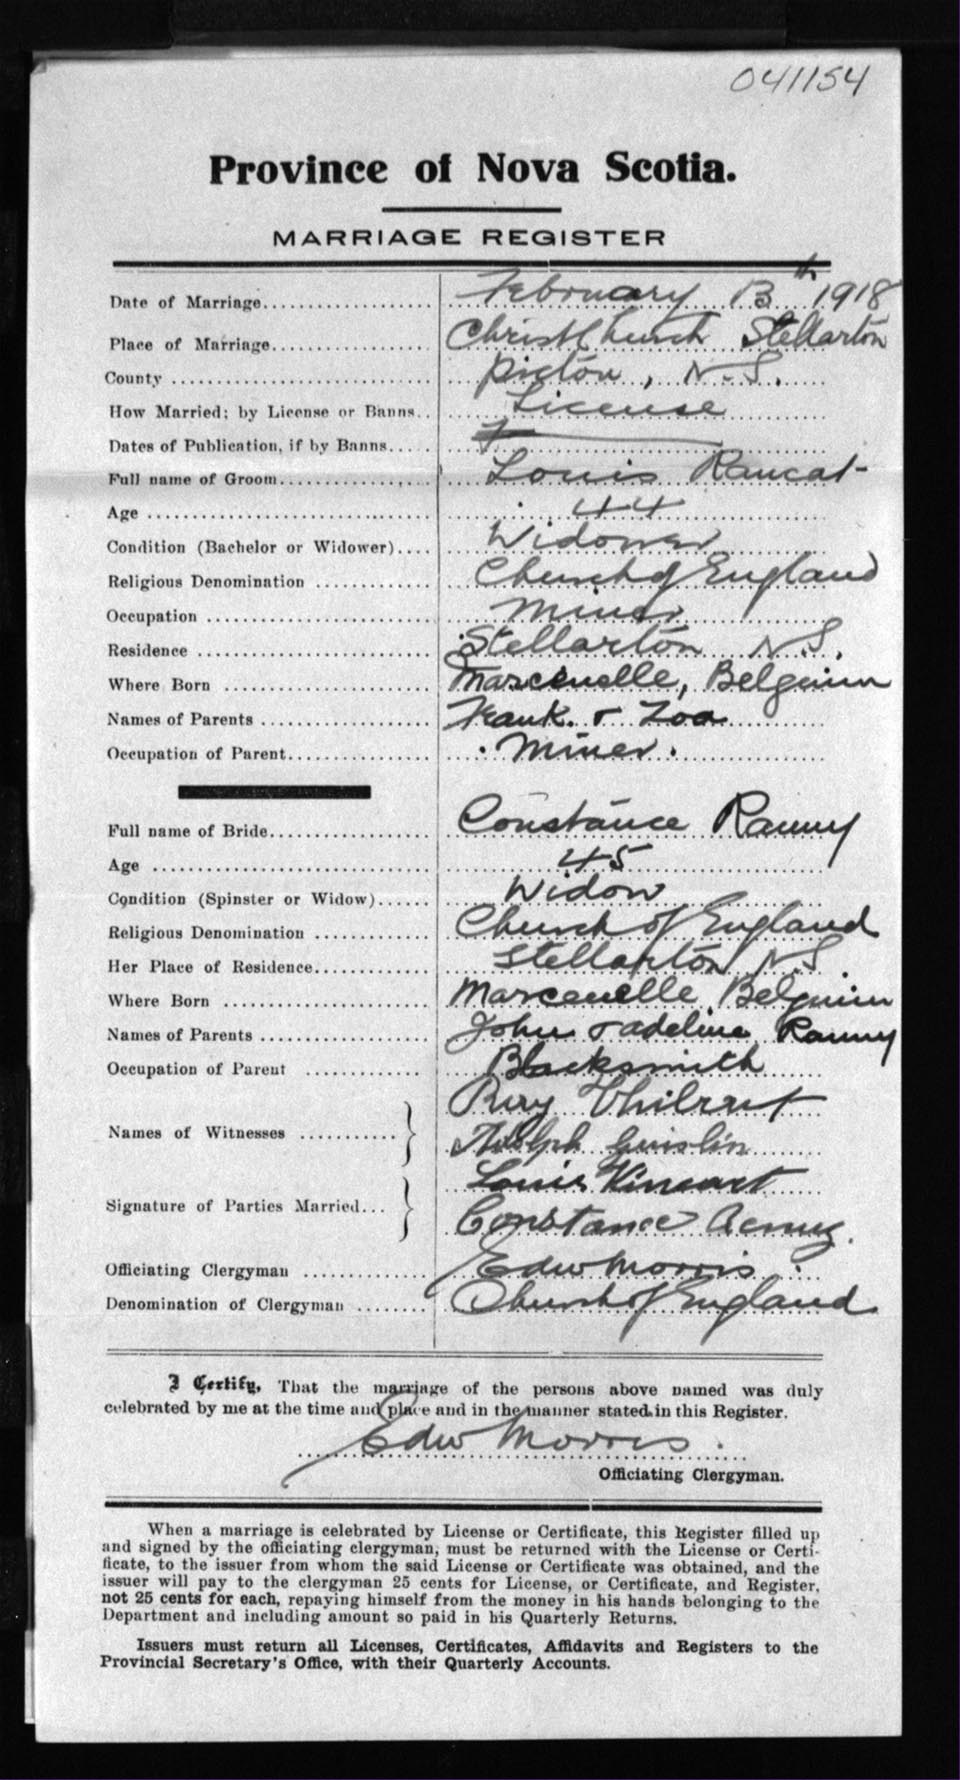 041154
Province of Nova Scotia.
MARRIAGE REGISTER
Date of Marriage February 13th 1918
Place of Marriage Christ Church Stellarton
County Pictou, N.S.
How Married; by License or Banns License
Dates of Publication, if by Banns
Full name of Groom Louis Rancat
Age 44
Condition (Bachelor or Widower) Widower
Religious Denomination Church of England
Occupation Miner
Residence Stellarton N.S.
Where Born Marcenelle, Belguim
Names of Parents Frank & Zoa
Occupation of Parent Miner.
Full name of Bride Constance Ranny
Age 45
Condition (Spinster or Widow) Widow
Religious Denomination Church of England
Her Place of Residence Stellarton N.S.
Where Born Marcenelle Belguim
Names of Parents John & Adeline Ranny
Occupation of Parent Blacksmith
Names of Witnesses
Adolph
Signature of Parties Married Louis
Constance
Officiating Clergyman Edw Morris
Denomination of Clergyman Church of England
I Certify, That the marriage of the persons above named was duly
celebrated by me at the time and place and in the manner stated in this Register.
Edw Morris.
Officiating Clergyman.
When a marriage is celebrated by License or Certificate, this Register filled up
and signed by the officiating clergyman, must be returned with the License or Certi-
ficate, to the issuer from whom the said License or Certificate was obtained, and the
issuer will pay to the clergyman 25 cents for License, or Certificate, and Register,
not 25 cents for each, repaying himself from the money in his hands belonging to the
Department and including amount so paid in his Quarterly Returns.
Issuers must return all Licenses, Certificates, Affidavits and Registers to the
Provincial Secretary's Office, with their Quarterly Accounts.